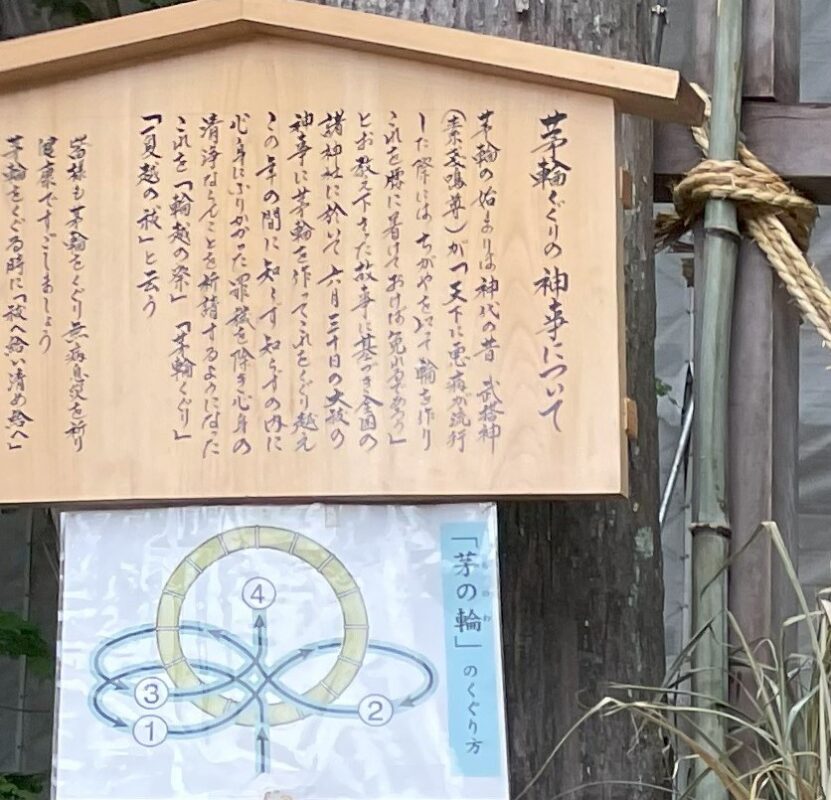 茅輪くぐりの神事について
茅輪の始まりは神代の昔 武塔神
(素戔嗚尊)が「天下に悪疫が流行
した際には ちがやを以て輪を作り
これを腰に着けておけば免れるであろう」
とお教え下さった故事に基づき全国の
諸神社に於いて 六月三十日の大祓の
神事に茅輪を作ってこれをくぐり越え
この年の間に知らず知らずの内に
心身にふりかかった罪穢を除き心身の
清浄ならんことを祈請するようになった
これを「輪越の祭」「茅輪くぐり」
「夏越の祓」と云う
皆様も茅輪をくぐり無病息災を祈り
健康ですごしましょう
茅輪をくぐる時に「祓へ給い清め給へ」
「茅の輪」のくぐり方
ち わ
④
③
①
②